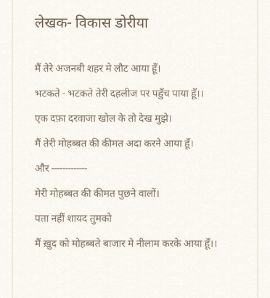 लेखक- विकास डोरीया
मैं तेरे अजनबी शहर मे लौट आया हूँ।
भटकते - भटकते तेरी दहलीज पर पहुँच पाया हूँ।।
एक दफ़ा दरवाजा खोल के तो देख मुझे।
मैं तेरी मोहब्बत की कीमत अदा करने आया हूँ।
और -------------
मेरी मोहब्बत की कीमत पुछने वालों।
पता नहीं शायद तुमको
मैं ख़ुद को मोहब्बते बाजार मे नीलाम करके आया हूँ।।